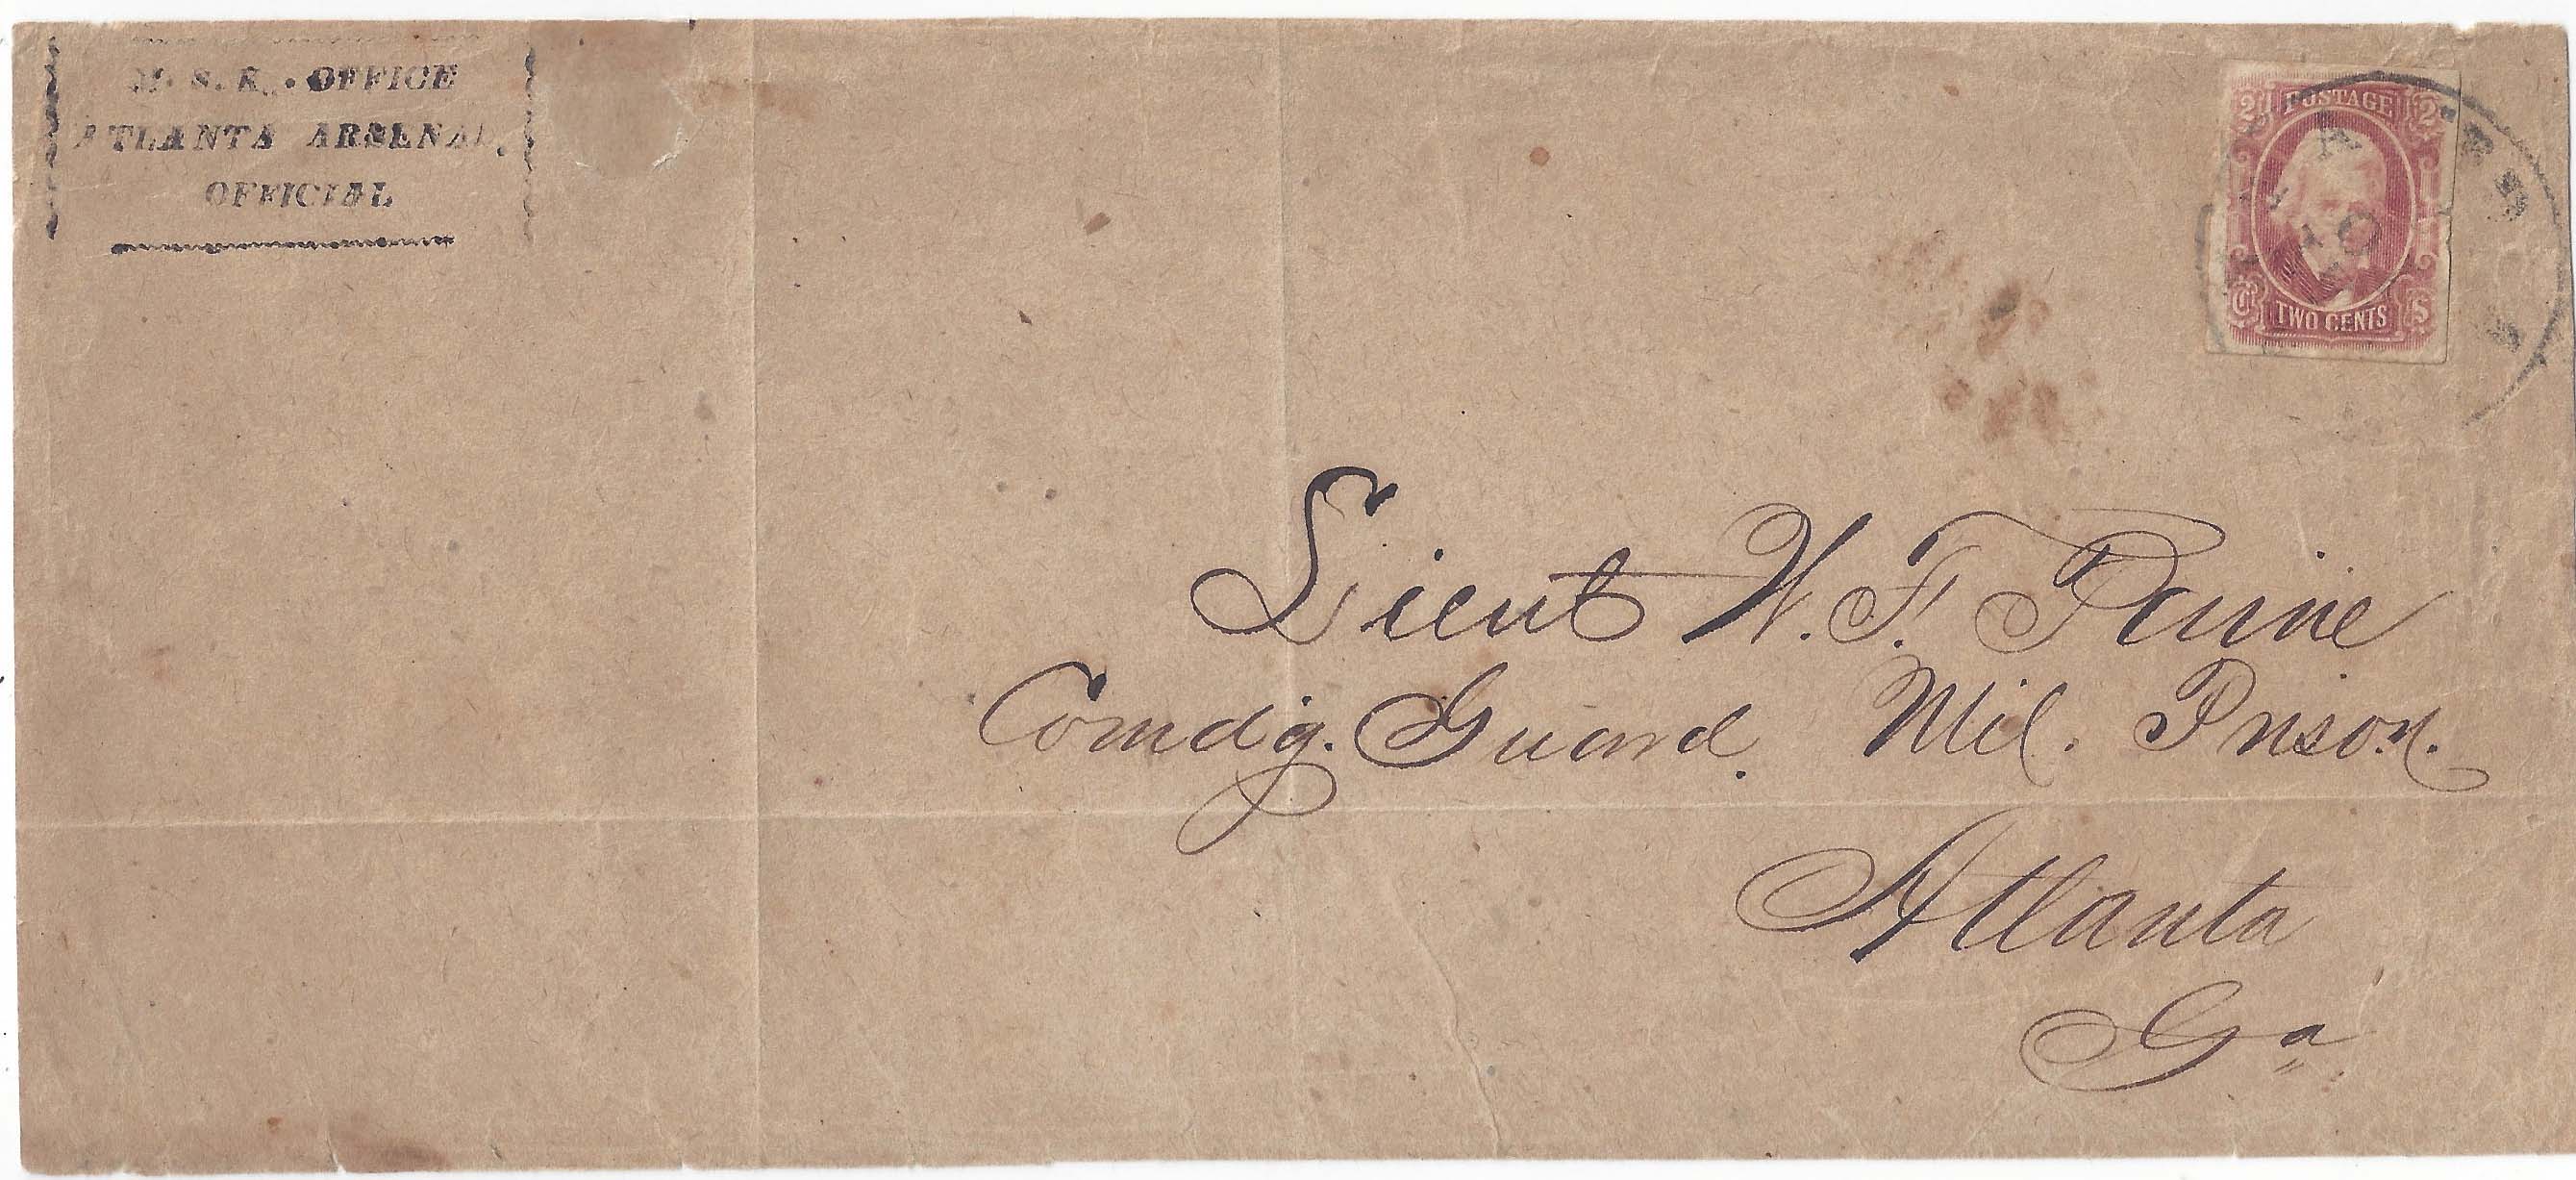 M. S. K. OFFICE
ATLANTA ARSENAL.
OFFICIAL
2 POSTAGE 2
10
CTS
TWO CENTS
Lieut W. F. Paine
Comdg. Guard. Mil. Prison.
Atlanta
Ga